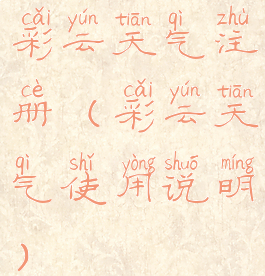 cǎi yún tiān qì zhù
彩云天气注
cè cǎi yún tiān
册(彩云天
qì shǐ yòng shuō míng
气使用说明
)